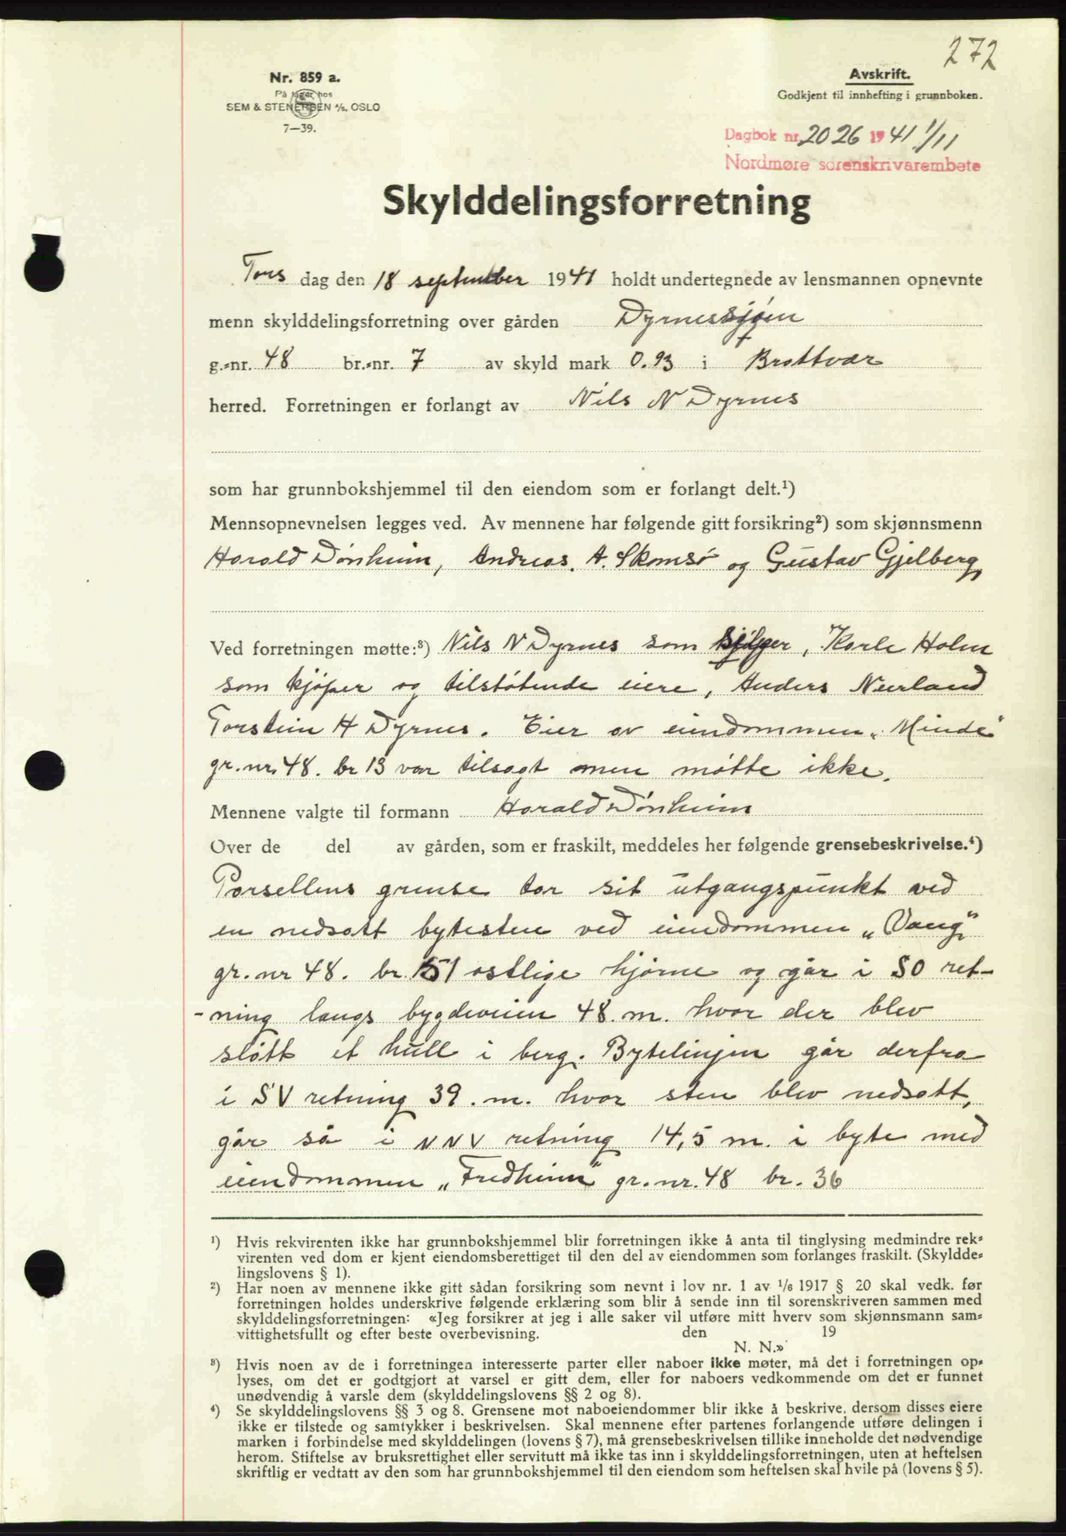 272
Nr. 859 a.
På lager hos
SEM & STENERSEN A/S. OSLO
7—39.
Avskrift.
Godkjent til innhefting i grunnboken.
Dagbok nr. 2026 1941 1/11
Nordmøre sorenskrivarembete
Skylddelingsforretning
Tors dag den 18 september 1941 holdt undertegnede av lensmannen opnevnte
menn skylddelingsforretning over gården Dyrnessjøen
g.-nr. 48 br.-nr. 7 av skyld mark 0.93 i Brattvær
herred. Forretningen er forlangt av Nils N Dyrnes
som har grunnbokshjemmel til den eiendom som er forlangt delt.¹)
Mennsopnevnelsen legges ved. Av mennene har følgende gitt forsikring²) som skjønnsmenn
Harald Dønheim, Andreas. A. Skomsø og Gustav Gjelberg,
Ved forretningen møtte:³) Nils N Dyrnes som selger, Karle Holm
som kjøper og tilstøtende eiere, Anders Neerland
Torstein H Dyrnes. Eier av eiendommen „Minde"
gr.nr. 48. br 13 var tilsagt men møtte ikke.
Mennene valgte til formann Harald Dønheim
Over de del av gården, som er fraskilt, meddeles her følgende grensebeskrivelse.⁴)
Parsellens grense tar sit utgangspunkt ved
en nedsatt bytesten ved eiendommen „Vang"
gr. nr 48. br. 51 østlige hjørne og går i SO ret-
-ning langs bygdeveien 48 m. hvor der blev
slått et hull i berg. Bytelinjen går derfra
i SV retning 39. m. hvor sten blev nedsatt,
går så i NNV retning 14,5 m. i byte med
eiendommen „Fredheim" gr. nr. 48 br. 36
¹) Hvis rekvirenten ikke har grunnbokshjemmel blir forretningen ikke å anta til tinglysing medmindre rek-
virenten ved dom er kjent eiendomsberettiget til den del av eiendommen som forlanges fraskilt. (Skyldde-
lingslovens § 1).
²) Har noen av mennene ikke gitt sådan forsikring som nevnt i lov nr. 1 av 1/6 1917 § 20 skal vedk. før
forretningen holdes underskrive følgende erklæring som blir å sende inn til sorenskriveren sammen med
skylddelingsforretningen: «Jeg forsikrer at jeg i alle saker vil utføre mitt hverv som skjønnsmann sam-
vittighetsfullt og efter beste overbevisning. den 19
N. N.»
³) Hvis noen av de i forretningen interesserte parter eller naboer ikke møter, må det i forretningen op-
lyses, om det er godtgjort at varsel er gitt dem, eller for naboers vedkommende om det er funnet
unødvendig å varsle dem (skylddelingslovens §§ 2 og 8).
⁴) Se skylddelingslovens §§ 3 og 8. Grensene mot naboeiendommer blir ikke å beskrive, dersom disses eiere
ikke er tilstede og samtykker i beskrivelsen. Skal mennene efter partenes forlangende utføre delingen i
marken i forbindelse med skylddelingen (lovens § 7), må grensebeskrivelsen tillike inneholde det nødvendige
herom. Stiftelse av bruksrettighet eller servitutt må ikke tas inn i skylddelingsforretningen, uten at heftelsen
skriftlig er vedtatt av den som har grunnbokshjemmel til den eiendom som heftelsen skal hvile på (lovens § 5).